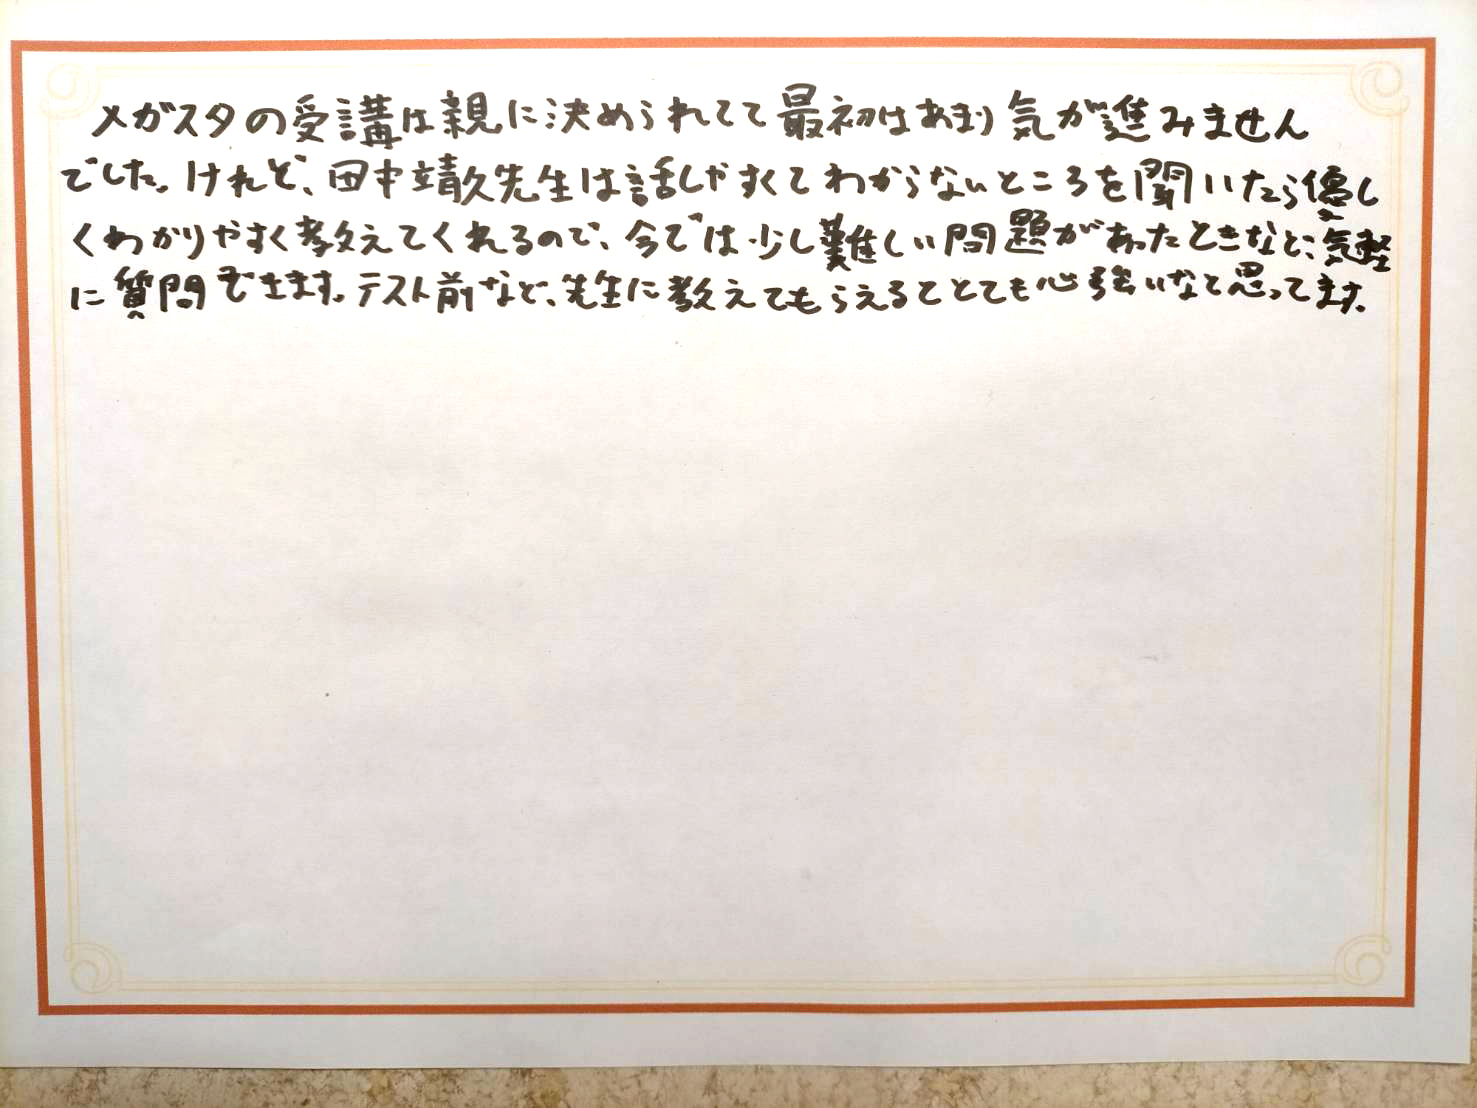 メガスタの受講は親に決められてて最初はあまり気が進みません
でした。けれど、田中靖久先生は話しやすくてわからないところを聞いたら優し
くわかりやすく教えてくれるので、今では少し難しい問題があったときなど、気軽
に質問できます。テスト前など、先生に教えてもらえるととても心強いなと思ってます。